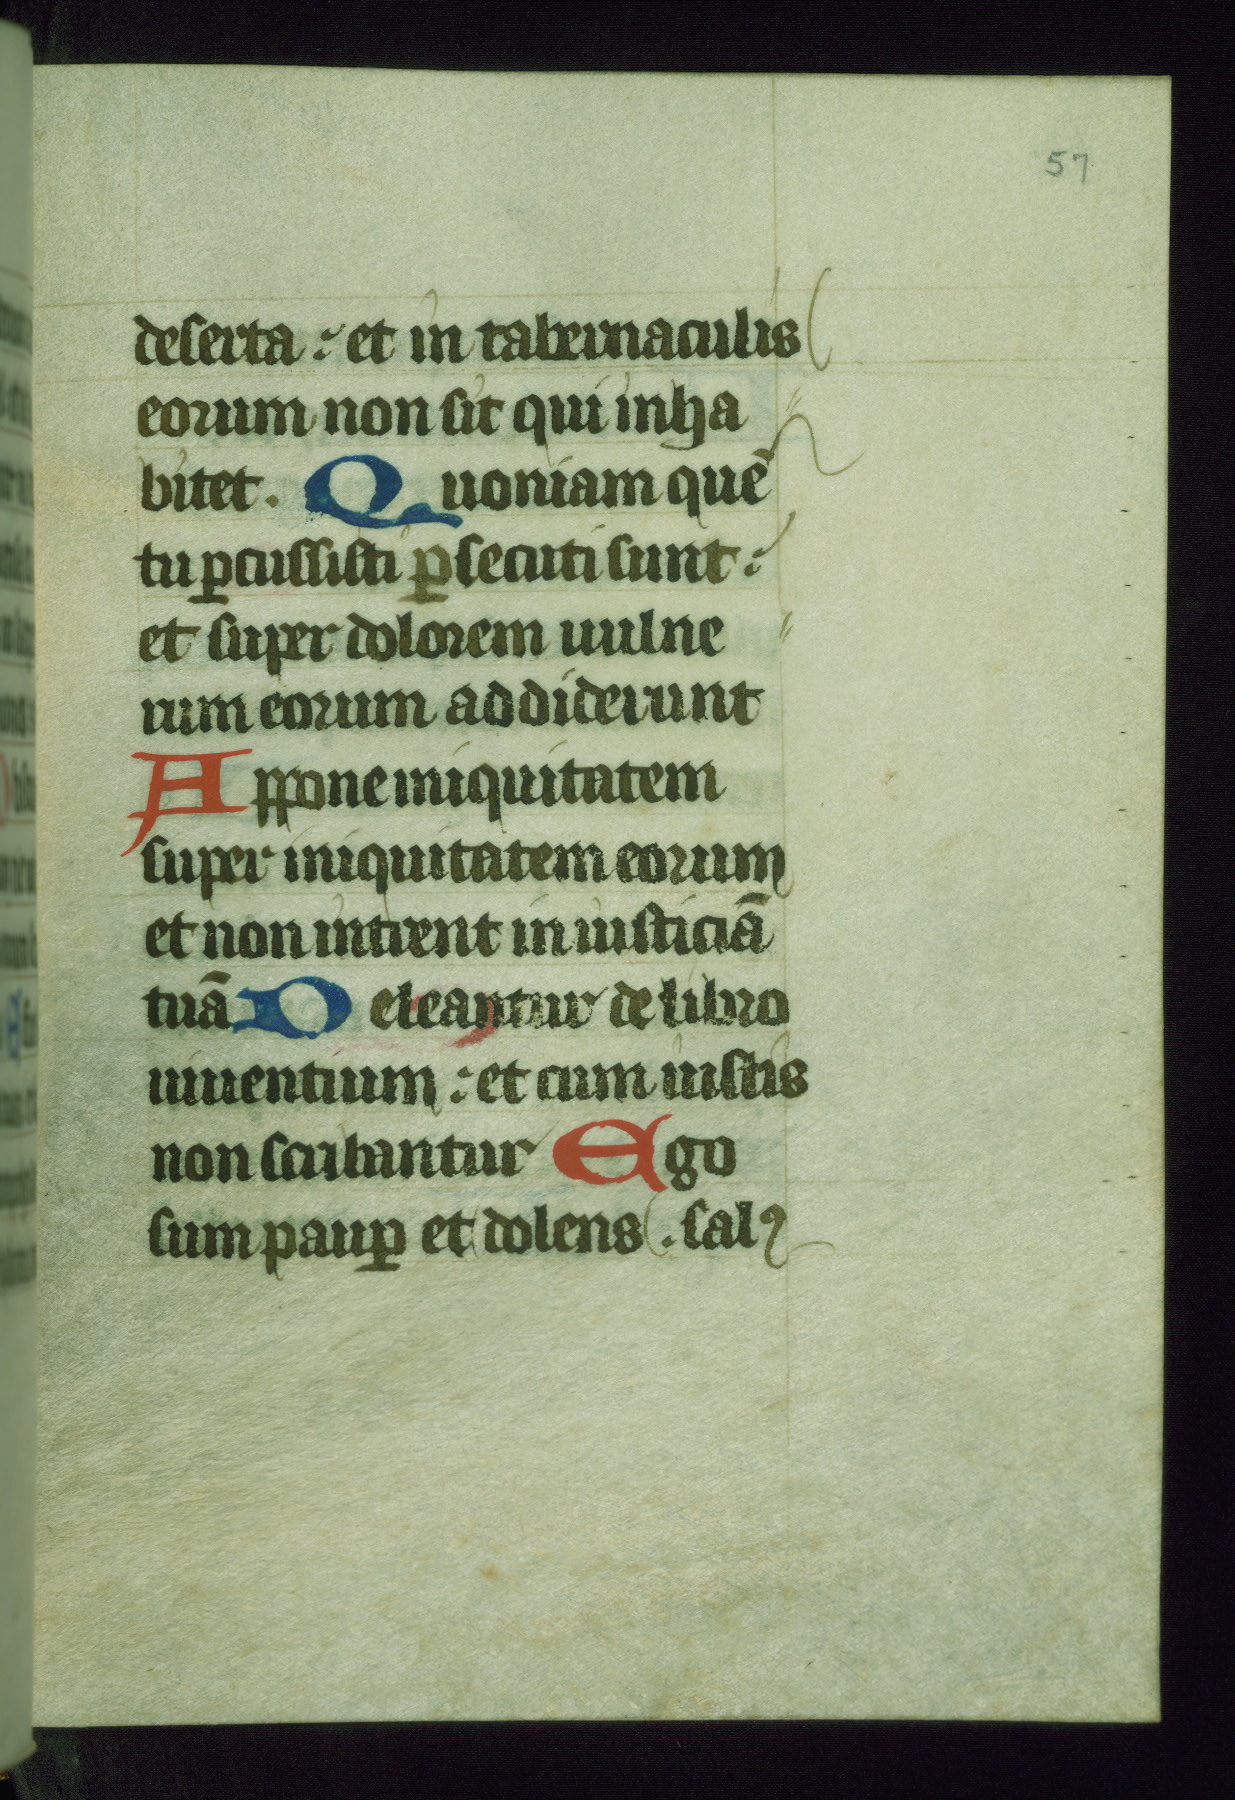 57
deserta : et in tabernaculis
eorum non sit qui inha
bitet. Quoniam quē
tu ꝑcussisti ꝑsecuti sunt :
et super dolorem uulne
rum eorum addiderunt
Appone iniquitatem
super iniquitatem eorum
et non intrent in iusticiā
tuā Deleantur de libro
uiuentium : et cum iustis
non scribantur Ego
sum pauꝑ et dolens . salꝰ